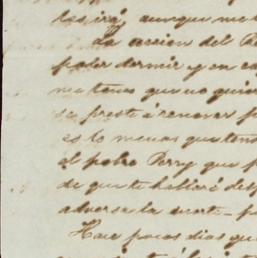 aunque me
La accion del Pe
poder dormir y en ca
me tenas que no quier
se preste á renovar p
es lo menos que ten
el pobre Perry que p
de que te hablaré desp
adversa la suerte p
Hace pocos dias que